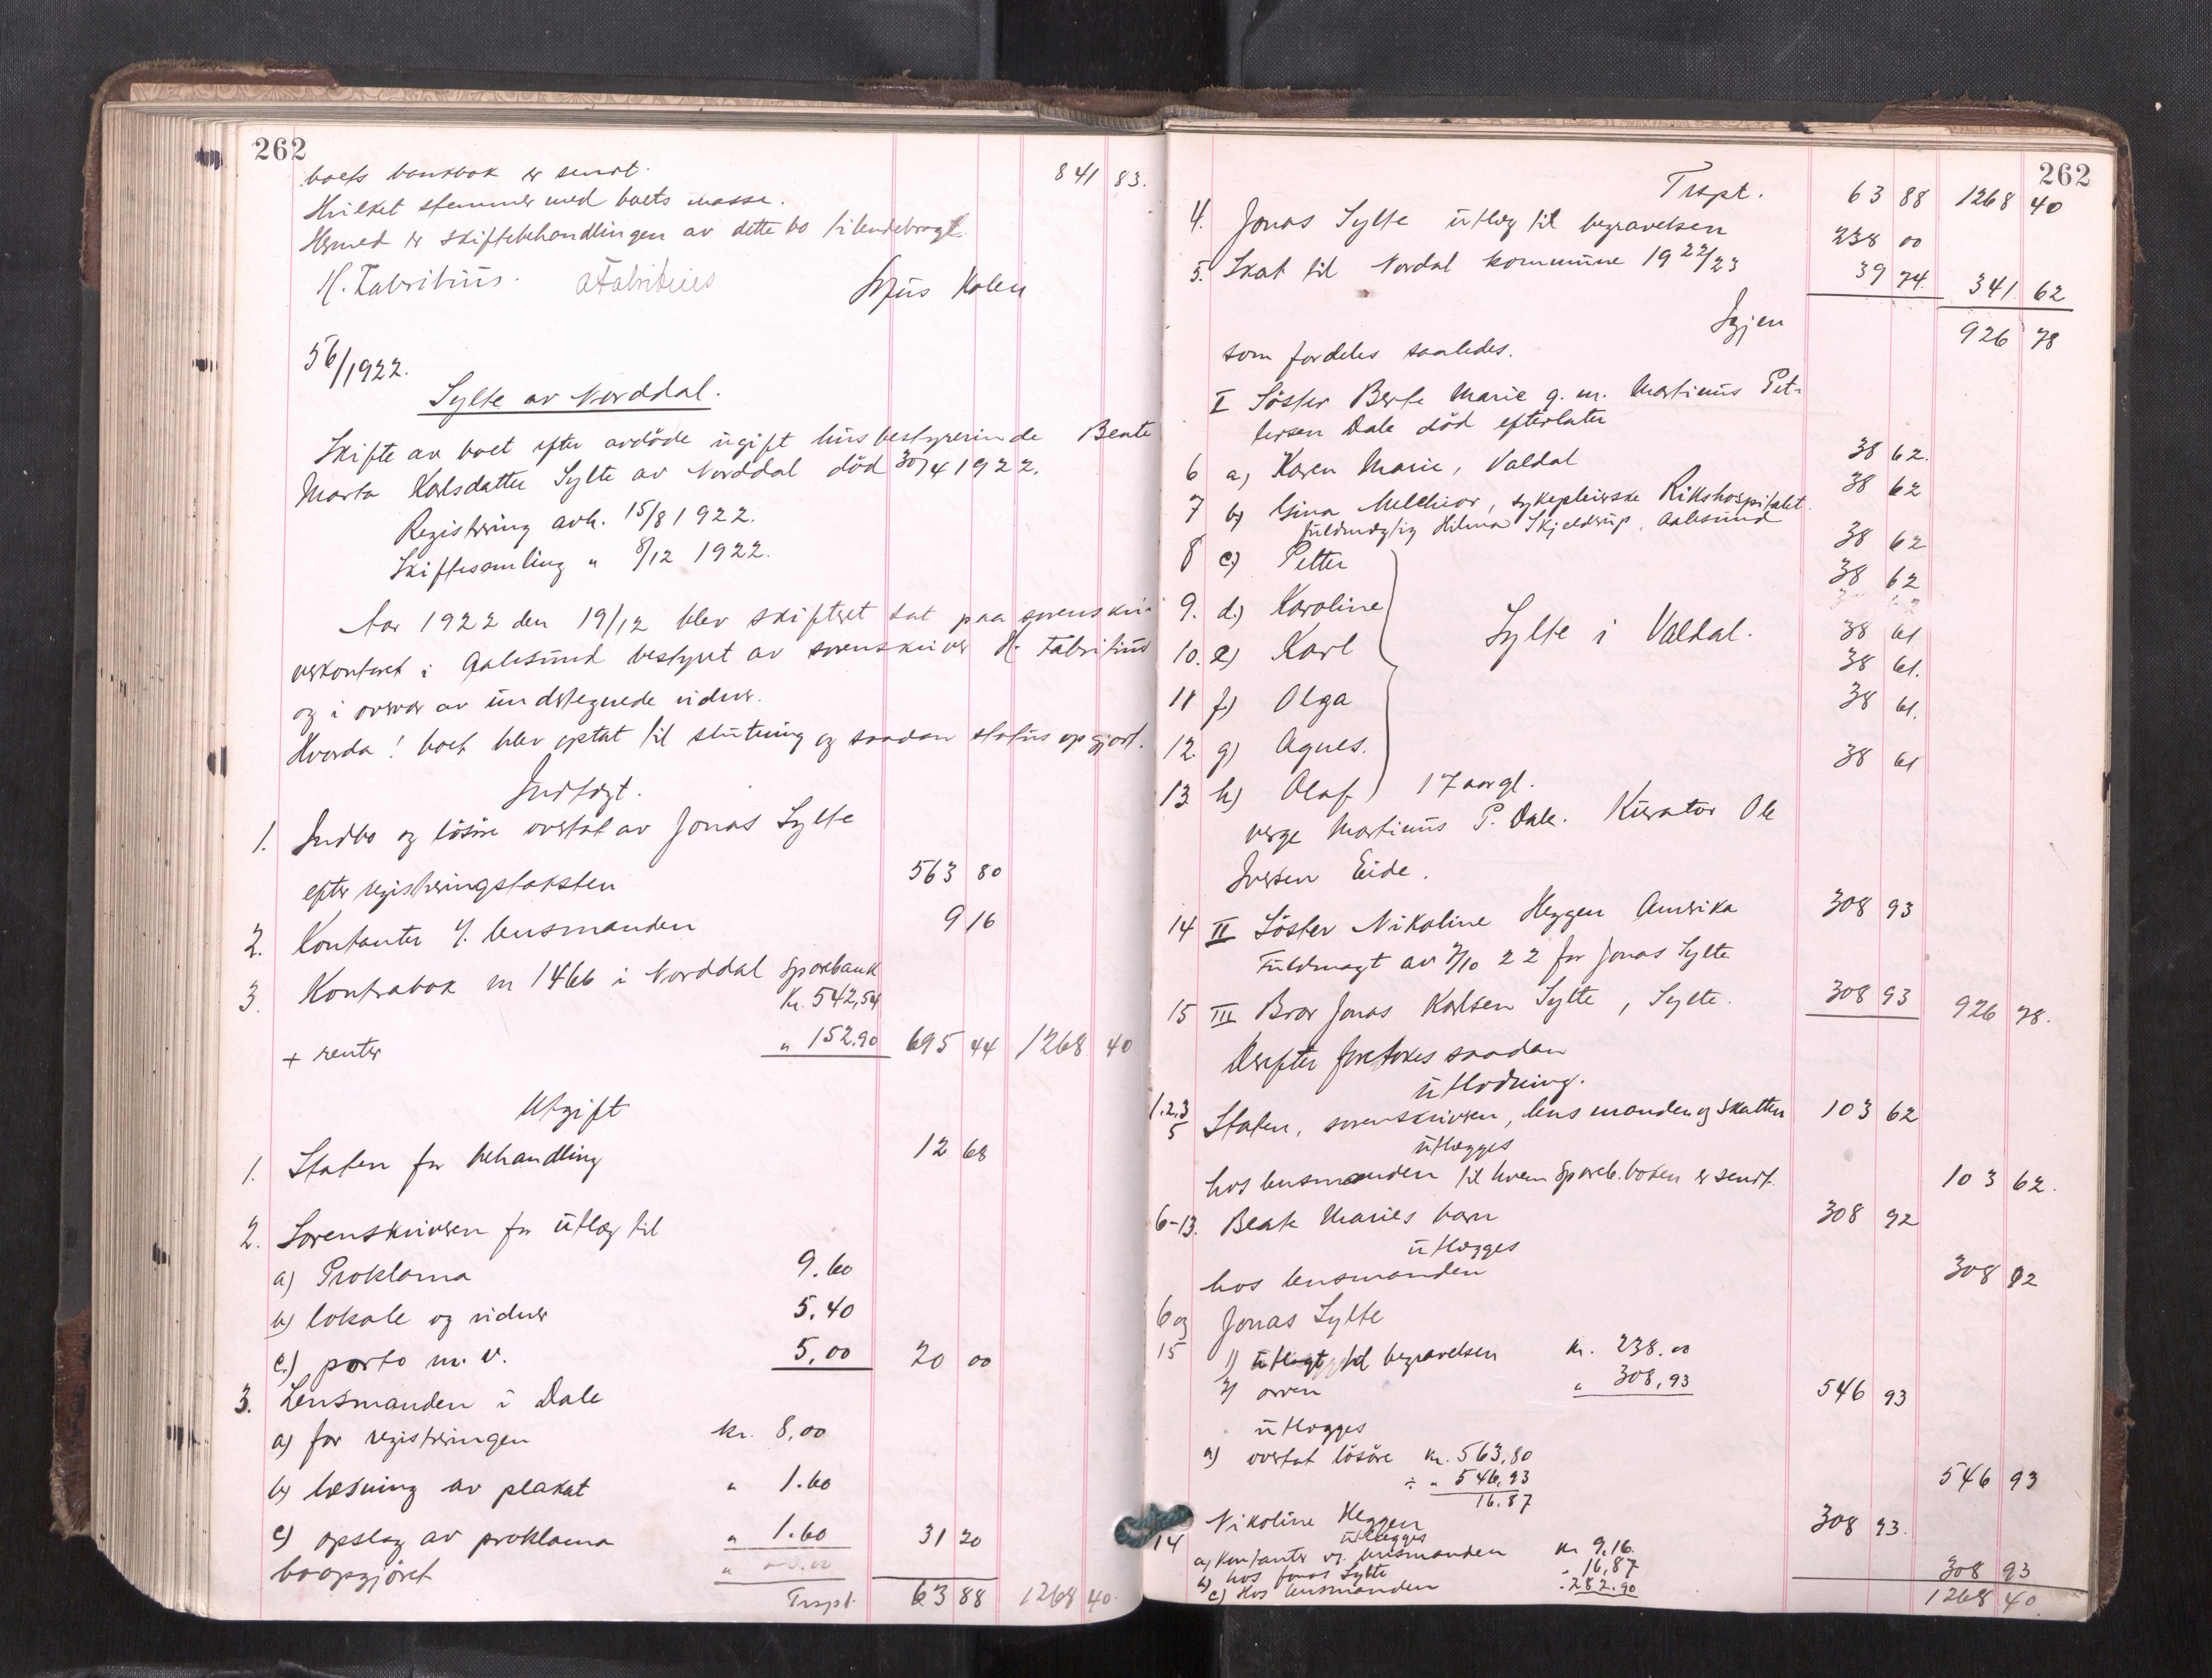 262
boets bankbok er sendt. 841 83.
Hvilket stemmer med boets masse.
Hermed er skiftebehandlingen av dette bo tilendebragt.
H. Fabritius. Sejus Holen
56/1922.
Sylte av Norddal.
Skifte av boet efter avdöde ugift husbestyrerinde Beate
Marta Karlsdatter Sylte av Norddal död 30/4 1922.
Registrering avh. 15/8 1922.
Skiftesamling " 8/12 1922.
Aar 1922 den 19/12 blev skifteret sat paa sorenskri-
verkontoret i Aalesund bestyret av sorenskriver H. Fabritius
og i overvær av undertegnede vidner.
Hvorda! boet blev optat til slutning og saadan status opgjort.
Indtægt.
1. Indbo og lösöre overtat av Jonas Sylte
efter registreringstaksten 563 80
2. Kontanter v/ lensmanden 9 16
3. Kontrabok nr 1466 i Norddal Sparebank
Kr. 542,54
+ renter " 152.90 695 44 1268 40
Utgift
1. Staten for behandling 12 68
2. Sorenskriveren for utlæg til
a) Proklama 9.60
b) lokale og vidner 5.40
c.) porto m. v. 5.00 20 00
3. Lensmanden i Dale
a) for registreringen kr. 8,00
b) læsning av plakat " 1.60
c) opslag av proklama " 1.60 31 20
boopgjöret "
Trspt. 63 88 1268 40.
262
Trspt. 63 88 1268 40
4. Jonas Sylte utlæg til begravelsen 238 00
5. Skat til Nordal kommune 1922/23 39 74 341 62
Igjen 926 78
som fordeles saaledes.
I Söster Berte Marie g. m. Martinus Pet-
tersen Dale död efterlater
6 a) Karen Marie, Valdal 38 62.
7 b) Gina Melchior, sykepleierske Rikshospitalet 38 62
fuldmægtig Hilma Skjeldrup, Aalesund
8 c) Petter 38 62
9. d.) Karoline 38 62
10. e) Karl Sylte i Valdal. 38 61
11 f.) Olga 38 61.
12. g) Agnes. 38 61.
13. h) Olaf 17 aar gl. 38 61
verge Martinus P. Dale. Kurator Ole
Iversen Eide.
14 II Söster Nikoline Heggen Amerika 308 93
Fuldmagt av 7/10 22 for Jonas Sylte
15 III Bror Jonas Karlsen Sylte, Sylte. 308 93 926 78.
Derefter foretokes saadan
utlodning.
1.2.3
5 Staten, sorenskriveren, lensmanden og skatten 103 62
utlægges
hos lensmanden til hvem Spareb.boken er sendt. 103 62.
6-13. Beate Maries barn 308 92
utlægges
hos lensmanden 308 92
6 og Jonas Sylte
15 1) utlagt til begravelsen kr. 238.00
2) arven " 308,93 546 93
utlægges
a) overtat lösöre kr. 563,80 546 93
÷ " 546,93
16.87
14 Nikoline Heggen 308 93.
utlægges
a) Kontanter v. lensmanden kr 9,16.
b) hos Jonas Sylte " 16,87
c) Hos lensmanden " 282.90 308 93
1268 40